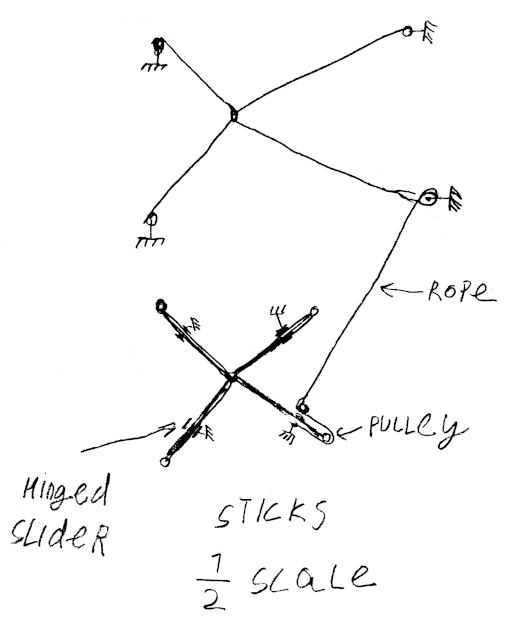 ROPe
PULLey
Hinged
SLideR
STICKS
1/2 SCaLe